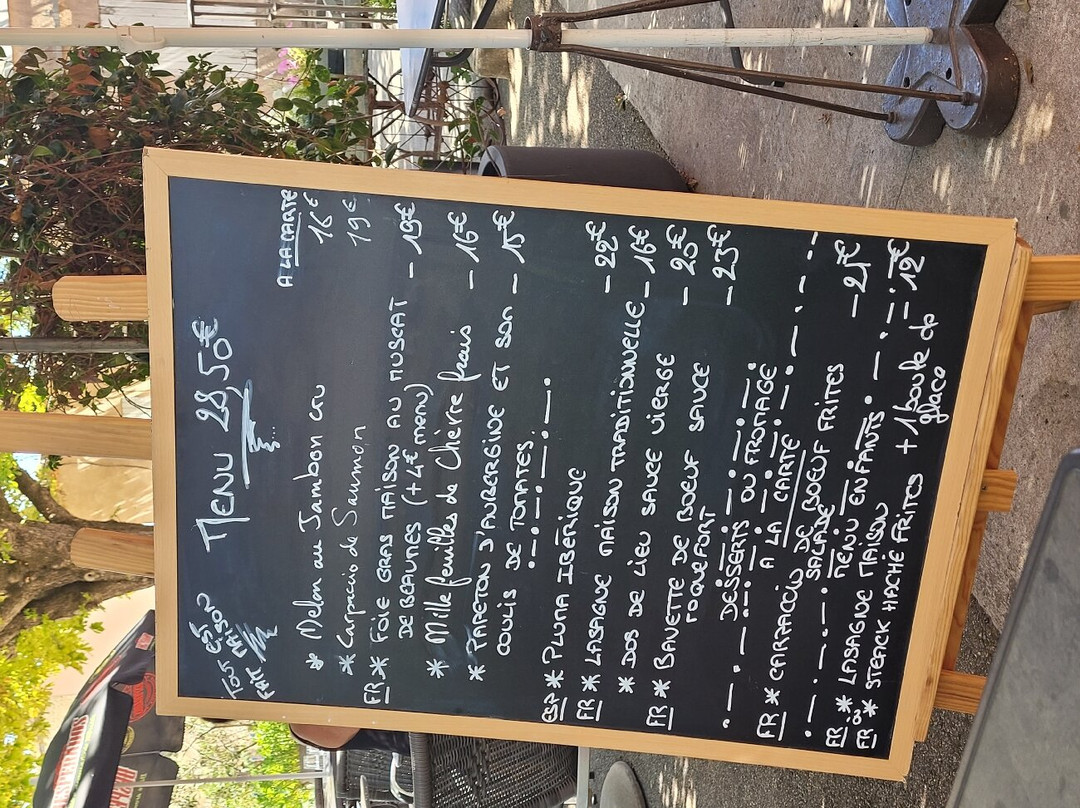 TOUT EST
FAIT MAISON
MENU 28,50€
A LA CARTE
* Melon au Jambon cru 16€
* Carpaccio de Saumon 19€
FR * FOIE GRAS MAISON AU MUSCAT - 19€
DE BEAUMES (+4€ menu)
* Mille feuilles de Chèvre frais - 16€
* PAPETON D'AUBERGINE ET SON - 15€
COULIS DE TOMATES.
ESP * PLUMA IBERIQUE - 22€
FR * LASAGNE MAISON TRADITIONNELLE - 16€
* DOS DE LIEU SAUCE VIERGE - 25€
FR * BAVETTE DE BOEUF SAUCE - 23€
ROQUEFORT
DESSERTS OU FROMAGE
A LA CARTE
FR * CARPACCIO DE BOEUF FRITES - 21€
SALADE
MENU ENFANTS
FR * LASAGNE MAISON = 12€
OU
FR * STEACK HACHÉ FRITES + 1 boule de
glace